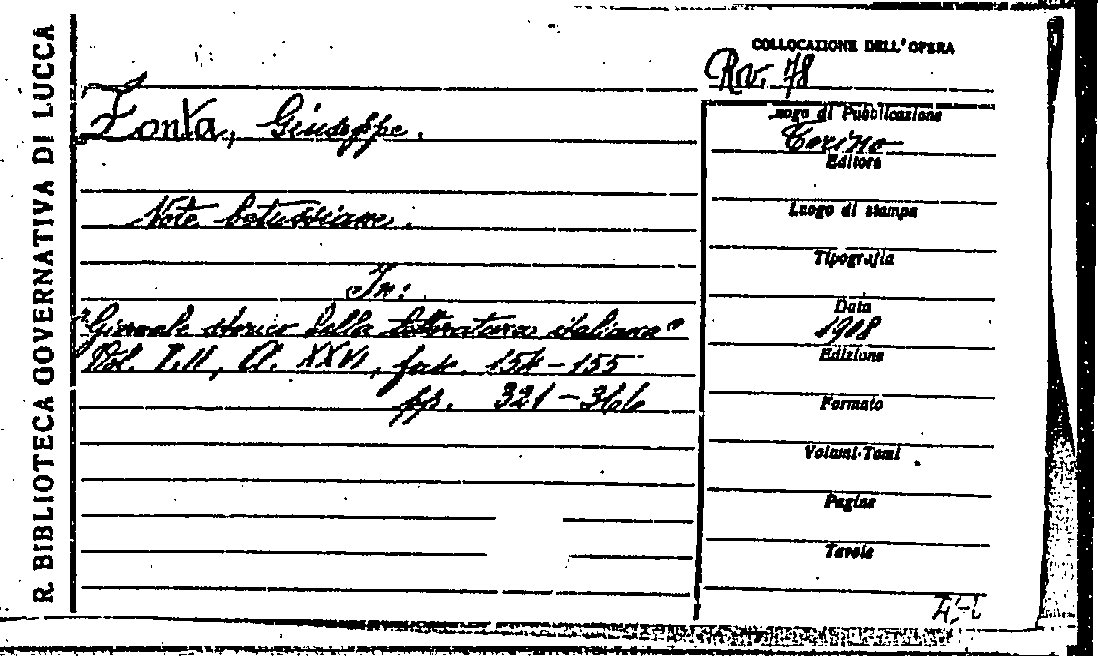 R. BIBLIOTECA GOVERNATIVA DI LUCCA
COLLOCAZIONE DELL'OPERA
Riv. 78
Zonta, Giuseppe.
Luogo di Pubblicazione
Torino
Editore
Note betussiane.
Luogo di stampa
Tipografia
In:
Data
"Giornale storico della letteratura italiana"
1908
Edizione
Vol. LII, A. XXVI, fasc. 154-155
pp. 321-366
Formato
Volumi-Tomi
Pagine
Tavole